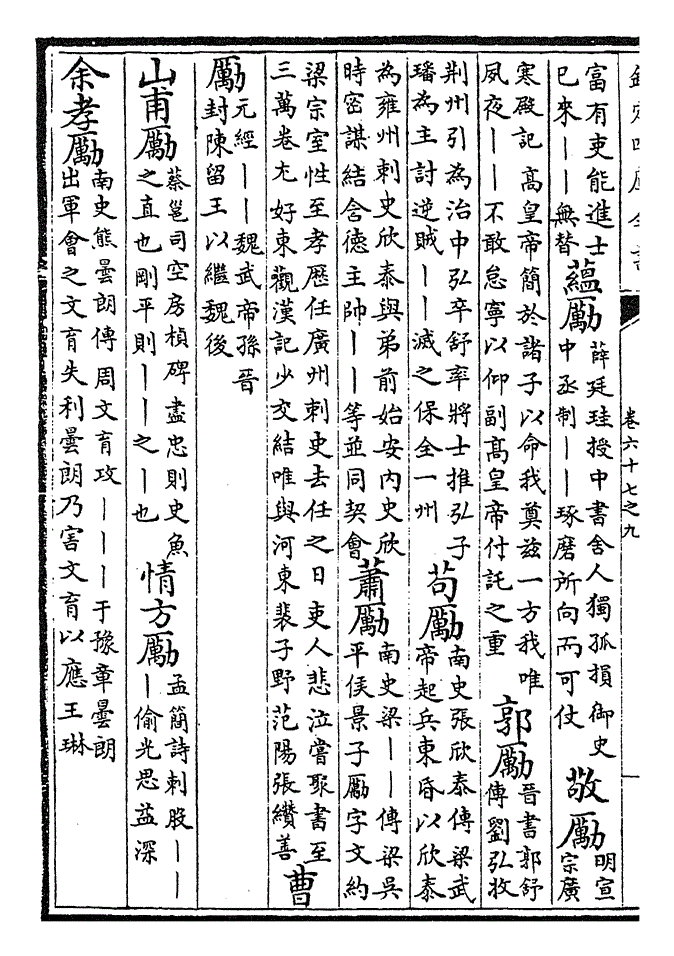 欽定四庫全書
卷六十七之九
富有吏能進士
巳來——無替
蘊勵
薛廷珪授中書舍人獨孤損御史
中丞制——琢磨所向而可仗
敬勵
明宣
宗廣
寒殿記髙皇帝簡於諸子以命我奠兹一方我唯
夙夜——不敢怠寧以仰副髙皇帝付託之重
郭勵
晉書郭舒
傳劉弘牧
荆州引為治中弘卒舒率將士推弘子
璠為主討逆賊——滅之保全一州
苟勵
南史張欣泰傳梁武
帝起兵東昏以欣泰
為雍州刺史欣泰與弟前始安内史欣
時密謀結舍德主帥——等並同契會
蕭勵
南史梁——傳梁吳
平侯景子勵字文約
梁宗室性至孝歷任廣州刺史去任之日吏人悲泣嘗聚書至
三萬卷尤好東觀漢記少交結唯與河東裴子野范陽張纘善
曹
勵
元經——魏武帝孫晉
封陳留王以繼魏後
山甫勵
蔡邕司空房楨碑盡忠則史魚
之直也剛平則——之—也
情方勵
孟簡詩刺股——
—偷光思益深
余孝勵
南史熊曇朗傳周文育攻———于豫章曇朗
出軍會之文育失利曇朗乃害文育以應王琳